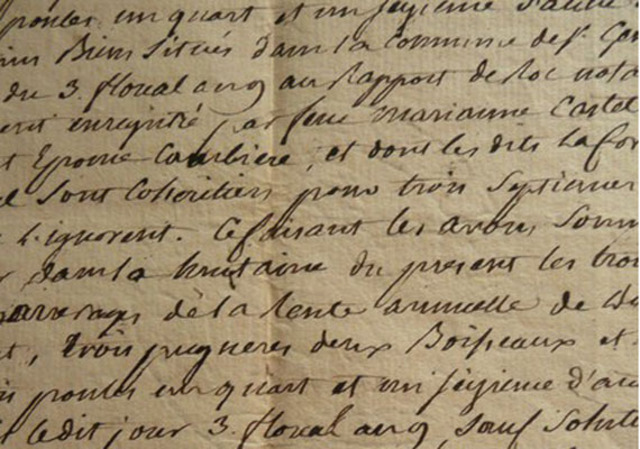 poules un quart et un sezieme d'autre
Biens situés dans la Commune de St. Ger
du 3. floreal an 9 au Rapport de Roc nota
enregistré, par feue marianne Castel
Epouse Caubiere, et dont les dits Lafor
Sont Cohéritiers pour trois Septiemes
L'ignorent. Ce faisant les avons Somm
dans la huitaine du present les troi
arrerages de la Rente annuelle de
trois pugneres deux Boisseaux et
poules un quart et un sezieme d'au
Ledit jour 3. floreal an 9, Sauf